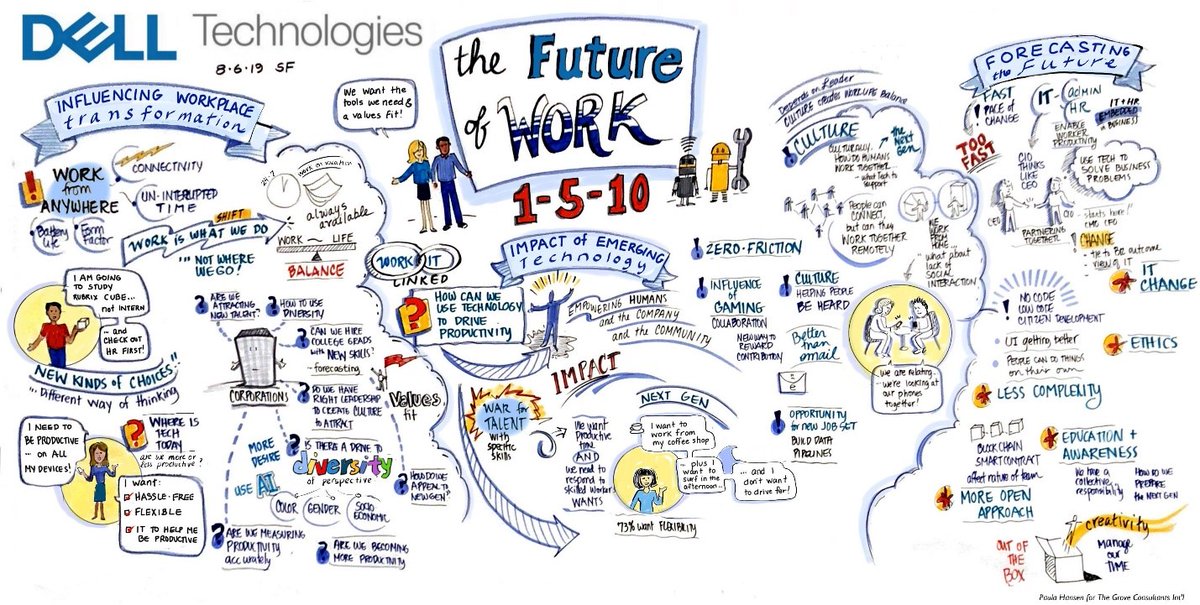 DELL Technologies
8-6-19 SF
the Future
of WORK
1-5-10
We want the
tools we need &
a values fit!
INFLUENCING WORKPLACE
transformation
WORK
from
ANYWHERE
CONNECTIVITY
UN-INTERUPTED
TIME
Battery
Life
Form
Factor
SHIFT
WORK IS WHAT WE DO
... NOT WHERE
WE GO!
24-7
work on vacation
always
available
WORK ~ LIFE
BALANCE
I AM GOING
TO STUDY
RUBRIX CUBE...
not INTERN
... and
CHECK OUT
HR FIRST!
NEW KINDS OF CHOICES:
... Different way of thinking
I NEED TO
BE PRODUCTIVE
... on ALL
MY DEVICES!
WHERE IS
TECH
TODAY
are we more or
less productive?
I want:
HASSLE-FREE
FLEXIBLE
IT TO HELP ME
BE PRODUCTIVE
ARE WE
ATTRACTING
NEW TALENT?
HOW TO USE
DIVERSITY
CORPORATIONS
CAN WE HIRE
COLLEGE GRADS
with NEW SKILLS?
- forecasting
DO WE HAVE
RIGHT LEADERSHIP
TO CREATE CULTURE
TO ATTRACT
Values
fit
MORE
DESIRE
USE AI
IS THERE A DRIVE TO
diversity
of perspective
COLOR
GENDER
SOCIO
ECONOMIC
HOW DO WE
APPEAL TO
NEW GEN?
ARE WE MEASURING
PRODUCTIVITY
accurately
ARE WE BECOMING
MORE PRODUCTIVITY
WORK IT
LINKED
HOW CAN WE
USE TECHNOLOGY
TO DRIVE
PRODUCTIVITY
IMPACT OF EMERGING
Technology
EMPOWERING HUMANS
and the COMPANY
and the COMMUNITY
IMPACT
WAR for
TALENT
with
specific
SKILLS
We want
productive
tool
AND
we need to
respond to
SKILLED WORKER
WANTS
NEXT GEN
I want to
work from
my coffee shop
... plus I
want to
surf in the
afternoon...
... and I
don't want
to drive for!
73% want FLEXIBILITY
ZERO-FRICTION
INFLUENCE
of
GAMING
COLLABORATION
NEW WAY to
REWARD
CONTRIBUTION
CULTURE
HELPING PEOPLE
BE HEARD
Better
than
email
OPPORTUNITY
for NEW JOB SET
BUILD DATA
PIPELINES
Depends on Leader
CULTURE CREATES WORK LIFE Balance
CULTURE
the
Next
Gen
CULTURALLY.
HOW DO HUMANS
WORK TOGETHER
- what Tech to
support
People can
CONNECT,
but can they
WORK TOGETHER
REMOTELY
WE
WORK
FROM
HOME...
... what about
lack of
SOCIAL
INTERACTION
we are relating
... we're looking at
our phones
together!
FORECASTING
the Future
FAST
PACE of
CHANGE
TOO
FAST
IT - admin
HR
ENABLE
WORKER
PRODUCTIVITY
IT + HR
EMBEDDED
in BUSINESS
CIO
THINKS
LIKE
CEO
USE TECH TO
SOLVE BUSINESS
PROBLEMS
CEO
PARTNERING
TOGETHER
CIO - starts here!!
CMO CFO
CHANGE
- tie to Biz outcome
view of IT
IT
CHANGE
NO CODE
LOW CODE
CITIZEN DEVELOPMENT
UI getting better
PEOPLE CAN DO THINGS
on their own
ETHICS
LESS COMPLEXITY
BLOCK CHAIN
SMART CONTRACT
affect nature of team
EDUCATION +
AWARENESS
We have a
collective
responsibility
HOW DO WE
PREPARE
the NEXT GEN
MORE OPEN
APPROACH
OUT OF
THE
BOX
creativity
MANAGE
our
TIME
Paula Hansen for The Grove Consultants Int'l